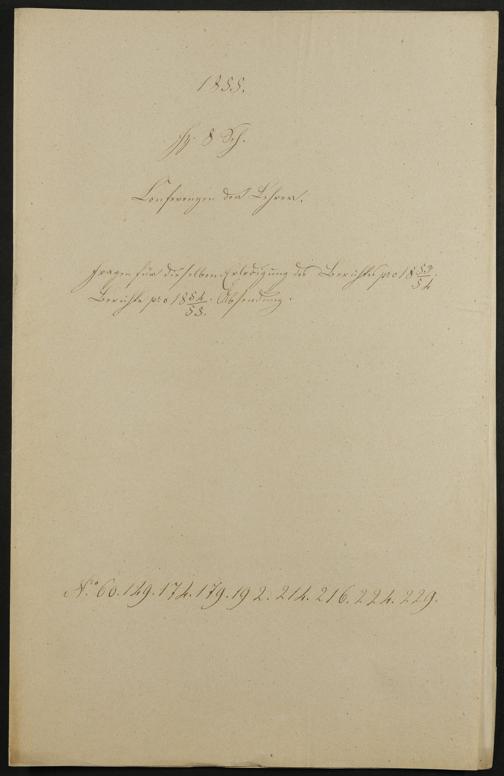 1855.
8 Sch.
Conferenzen der Lehrer.
Fragen für dieselben. Erledigung des Berichts pro 1853/54.
Berichte pro 1854/55. Absendung.
No. 60. 149. 174. 179. 192. 214. 216. 224. 229.